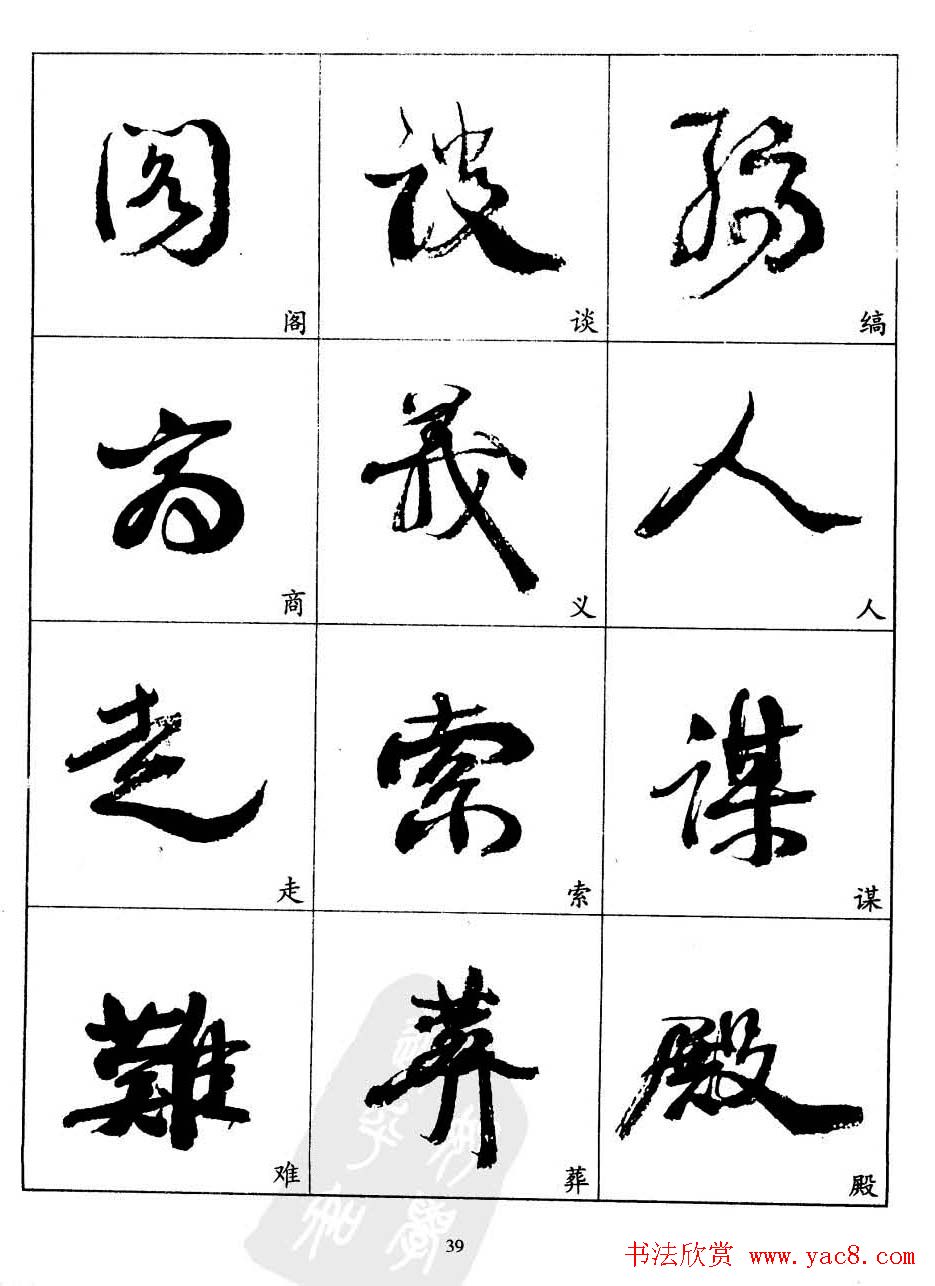 阁 谈 缟
阁 谈 缟
商 義 人
商 义 人
走 索 谋
走 索 谋
難 葬 殿
难 葬 殿
39
书法欣赏 www.yac8.com